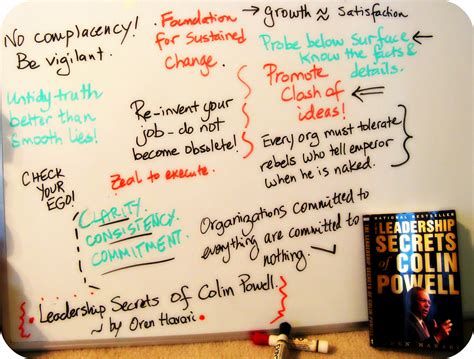 No complacency!
Be vigilant.
Foundation
for Sustained
Change.
→ growth ≈ Satisfaction
Probe below surface
know the facts &
details.
Untidy truth
better than
smooth lies!
Re-invent your
job - do not
become obsolete!
Promote
Clash of
ideas!
Every org must tolerate
rebels who tell emperor
when he is naked.
CHECK
YOUR
EGO!
Zeal to execute.
CLARITY
CONSISTENCY
COMMITMENT.
Organizations committed to
everything are committed to
nothing.
Leadership Secrets of Colin Powell.
~ by Oren Harari.
NATIONAL BESTSELLER
THE
LEADERSHIP
SECRETS
of COLIN
POWELL
OREN HARARI